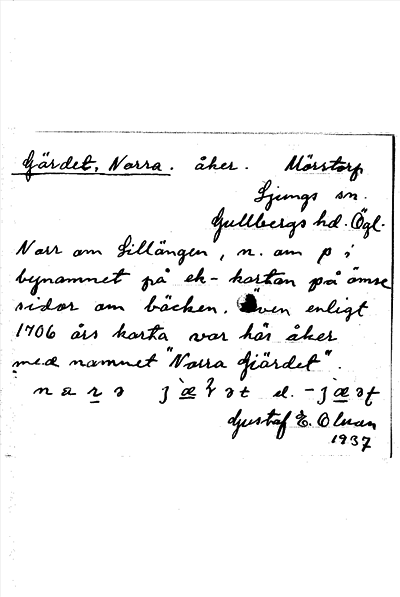 Gärdet, Norra. åker. Mörstorp
Ljungs sn.
Gullbergs hd. Ögl.
Norr om Lillängen, n. om p i
bynamnet på ek-kartan på ömse
sidor om bäcken. Även enligt
1706 års karta var här åker
med namnet "Norra Gjärdet".
Gustaf E. Olsson
1937